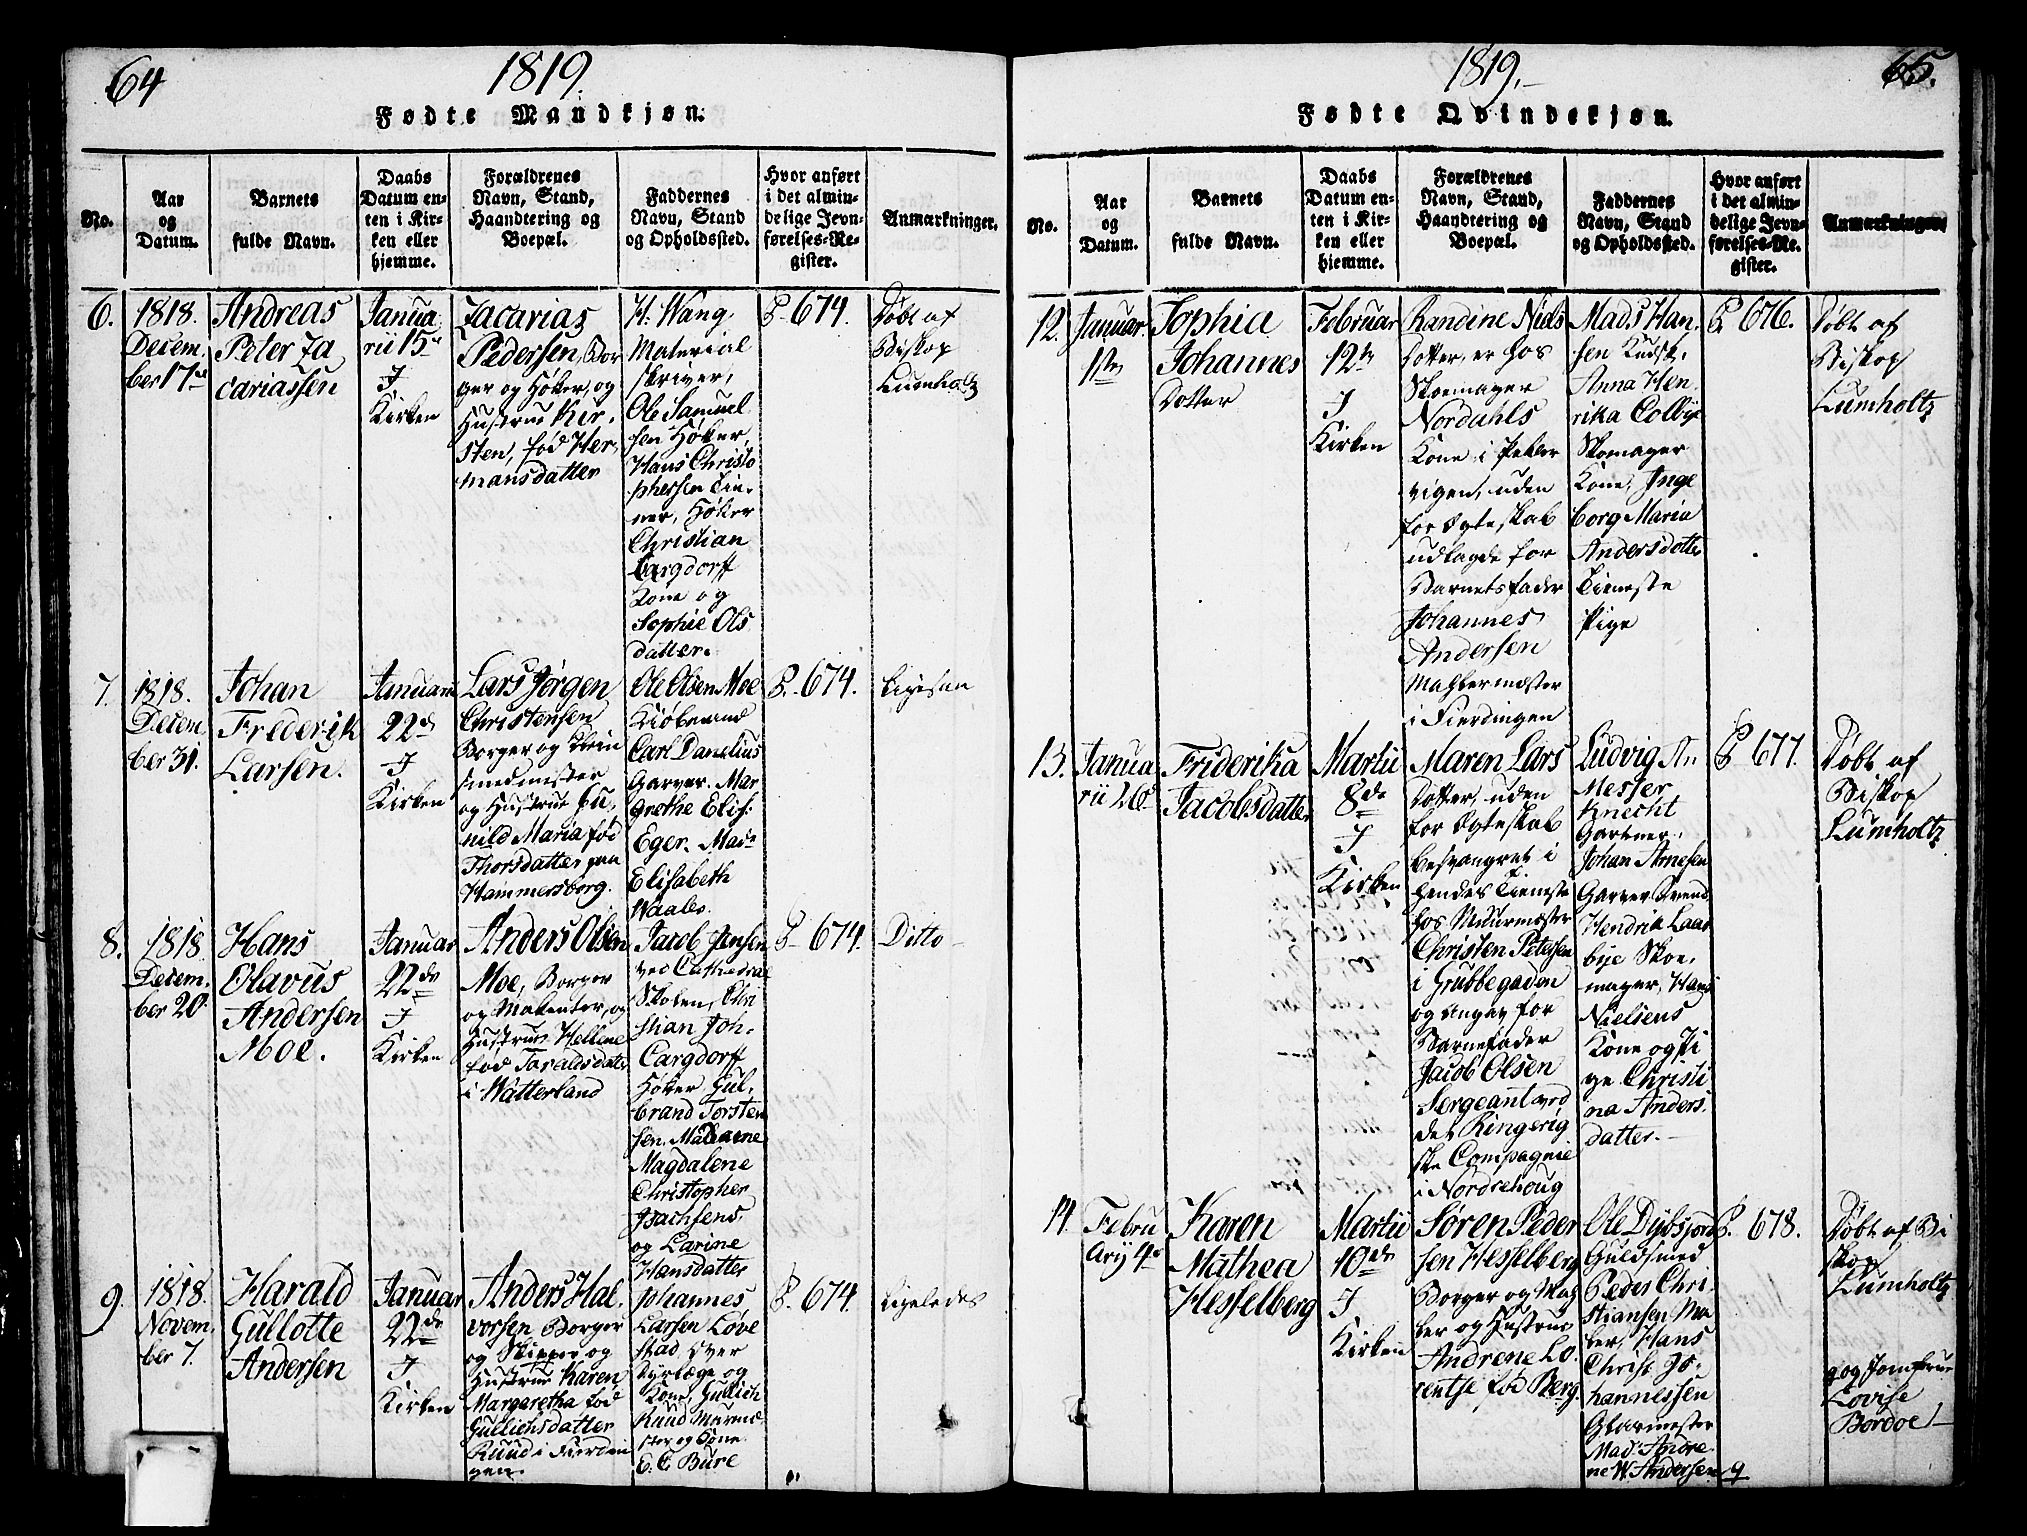 64
1819.
Fødte Mandkjøn.
No.
Aar
og
Datum.
Barnets
fulde Navn.
Daabs
Datum en-
ten i Kir-
ken eller
hjemme.
Forældrenes
Navn, Stand,
Haandtering og
Boepæl.
Faddernes
Navn, Stand
og Opholdssted.
Hvor anført
i det almin-
delige Jevn-
førelses-Re-
gister.
Anmærkninger.
6.
1818.
Decem
ber 17de
Andreas
Peter Za
cariassen
Janua
rii 15de
I
Kirken
Zacarias
Pedersen, Bor
ger og Høker, og
Hustrue Kir-
sten, fød Her-
mansdatter
H. Wang,
Material
skriver,
Ole Samuel
sen Høker,
Hans Christo
phersen Tie-
ner, Høker
Christian
Cargdorff
Kone og
Sophie Ols
datter.
P. 674.
Døbt af
Biskop
Lumholtz
7.
1818.
Decem
ber 31.
Johan
Frederik
Larsen.
Januari
22de
I
Kirken
Lars Jørgen
Christensen
Borger og Klein
smedmester
og Hustrue Gu-
nild Maria fød
Thorsdatter paa
Hammersborg.
Ole Olsen Moe
Kiøbmand
Carl Danelius
Garver. Mar
grethe Elis:
Eger. Made
Elisabeth
Waales.
P. 674.
Ligesaa
8.
1818
Decem
ber 20.
Hans
Olavus
Andersen
Moe.
Januar
22de
I
Kirken
Anders Olsen
Moe, Borger
og
Hustrue Hellene
fød Taraldsdatter
i Watterland
Jacob Jensen
ved Cathedral
Skolen, Chri
stian Joh.
Cargdorff
Høker, Gul-
brand Torsten
sen. Madame
Magdalene
Christopher
Isachsens
og Larine
Hansdatter
P. 674.
Ditto
9.
1818.
Novem
ber 7.
Harald
Gullotte
Andersen
Januar
22de
I
Kirken
Anders Hal-
vorsen Borger
og Skipper og
Hustrue Karen
Margaretha fød
Gullichsdatter
Ruud i Fierdin
gen.
Johannes
Larsen Løve
stad over
Dyrlæge og
Kone, Gullich
Ruud Murme
ster og Kone
E. C. Bure
P. 674.
Ligeledes
65.
1819.
Fødte Qvindekjøn.
No.
Aar
og
Datum.
Barnets
fulde Navn.
Daabs
Datum en-
ten i Kir-
ken eller
hjemme.
Forældrenes
Navn, Stand,
Haandtering og
Boepæl.
Faddernes
Navn, Stand
og Opholdssted.
Hvor anført
i det almin-
delige Jevn-
førelses-Re-
gister.
Anmærkninger
12.
Januar.
1ste
Sophia
Johannes
Dotter
Februar
12te
I
Kirken
Randine Niels
Dotter, er hos
Skoemager
Nordahls
Kone i Pebler
vigen, uden
for Ægteskab
udlagde for
Barnetsfader
Johannes
Andersen
Mahlermæster
i Fierdingen
Mads Han-
sen Kudsk,
Anna Hen
rika Colbye
Skomager
Kone, Inge
borg Maria
Andersdotter
Tieneste
Pige
P. 676.
Døbt af
Biskop
Lumholtz
13.
Janua
rii 26de
Friderika
Jacobsdatter
Martii
8de
I
Kirken
Maren Lars
Dotter, uden
for Ægteskab
besvangret i
hendes Tieneste
hos Muurmæster
Christen Petersen
i Grubbegaden
og angav for
Barnefader
Jacob Olsen
Sergeant ved
det Ringerig
ske Compagnie
i Nordrehoug
Ludvig An.
Messer
Knecht
Gartner,
Johan Arnesen
Garver Svend,
Hendrik Laas
bye Skoe-
mager, Hans
Nielsens
Kone og Pi
ge Christi
na Anders
datter.
P. 677.
Døbt af
Biskop
Lumholtz
14.
Febru
Arij 4de
Karen
Mathea
Hesselberg
Martii
10de
I
Kirken
Søren Peder
sen Hesselberg
Borger og Mah
ler og Hustrue
Andrene Lo-
rentse fød Berg.
Ole Dybsjord
Guldsmed
Peder Chri-
stiansen Ma
ler, Hans
Christ. Jo-
hannessen
Glarmester
Mad. Andre
ne W. Andersen q
P. 678.
Døbt af Bi
skop
Lumholtz
q og Jomfrue
Lovise
Bordoe